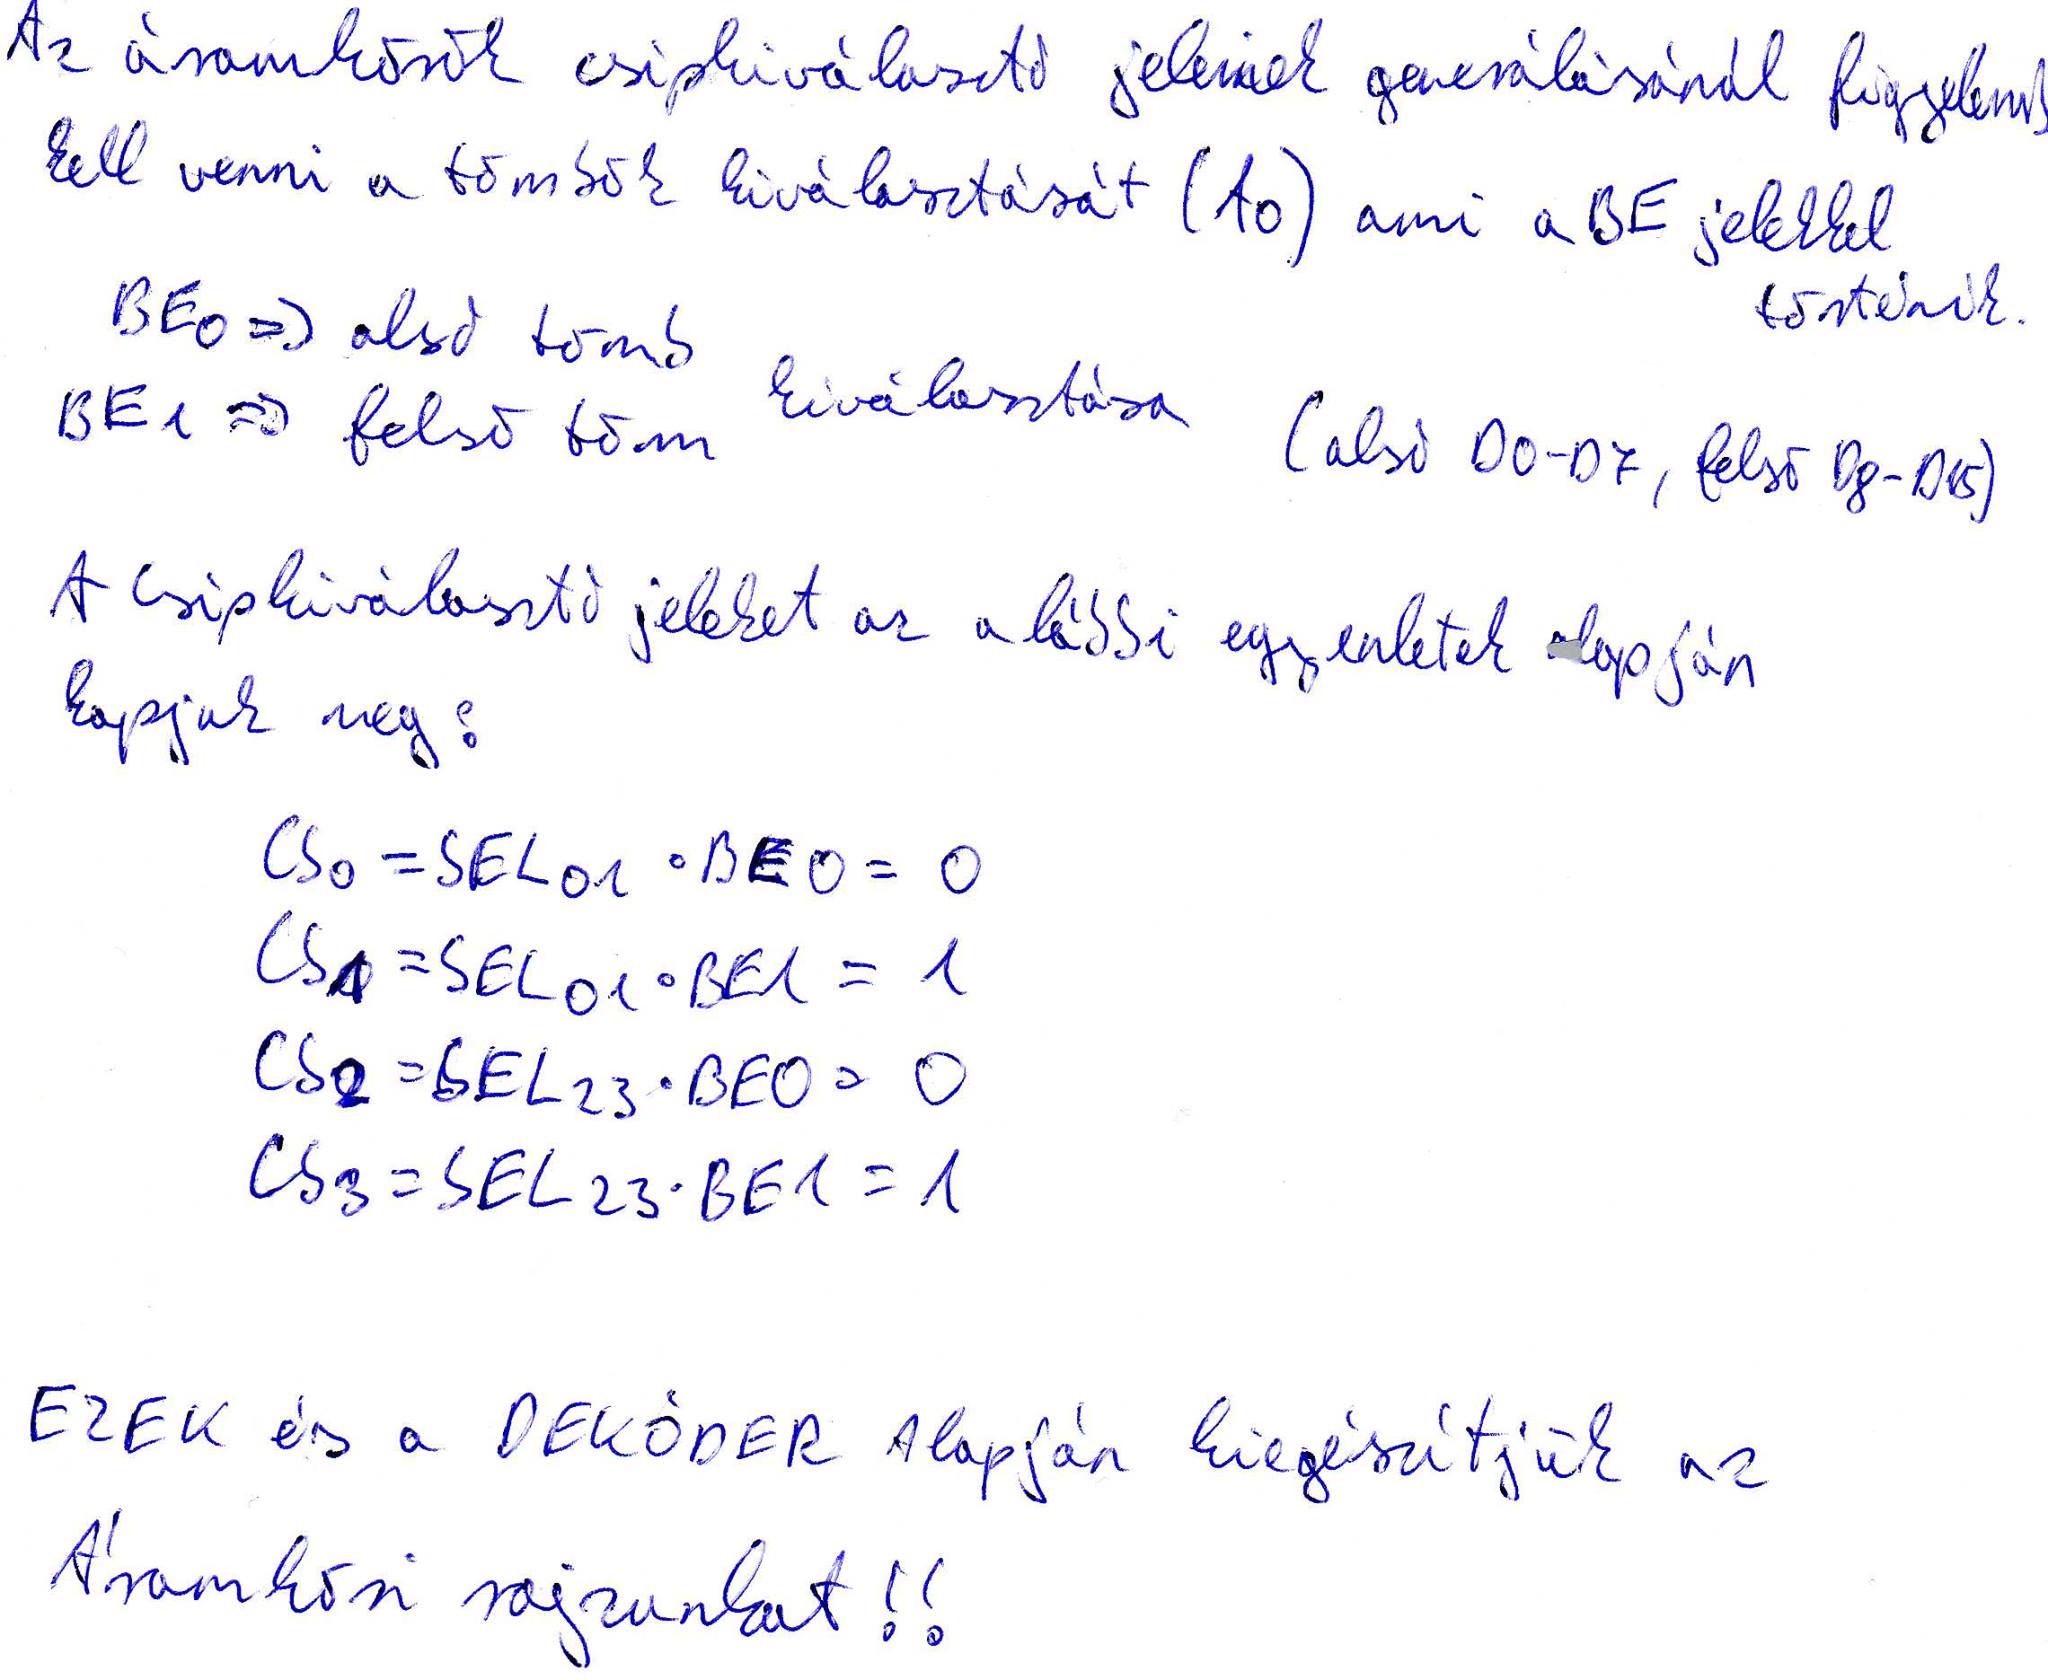 Az áramkörök csipkiválasztó jeleinek generálásánál figyelemb
kell venni a tömbök kiválasztását (A0) ami a BE jelekkel
történik.
BE0 => alsó tömb
BE1 => felső töm kiválasztása (alsó D0-D7, felső D8-D15)
A Csipkiválasztó jeleket az alábbi egyenletek alapján
kapjuk meg:
CS0 = SEL01 • BE0 = 0
CS1 = SEL01 • BE1 = 1
CS2 = SEL23 • BE0 = 0
CS3 = SEL23 • BE1 = 1
EZEK és a DEKÓDER Alapján kiegészítjük az
Áramköri rajzunkat!!